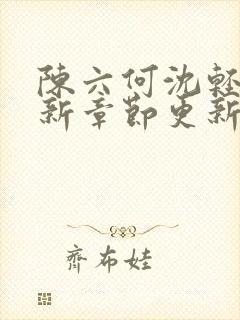 陳六何沈輕
新章節更新
齊布娃